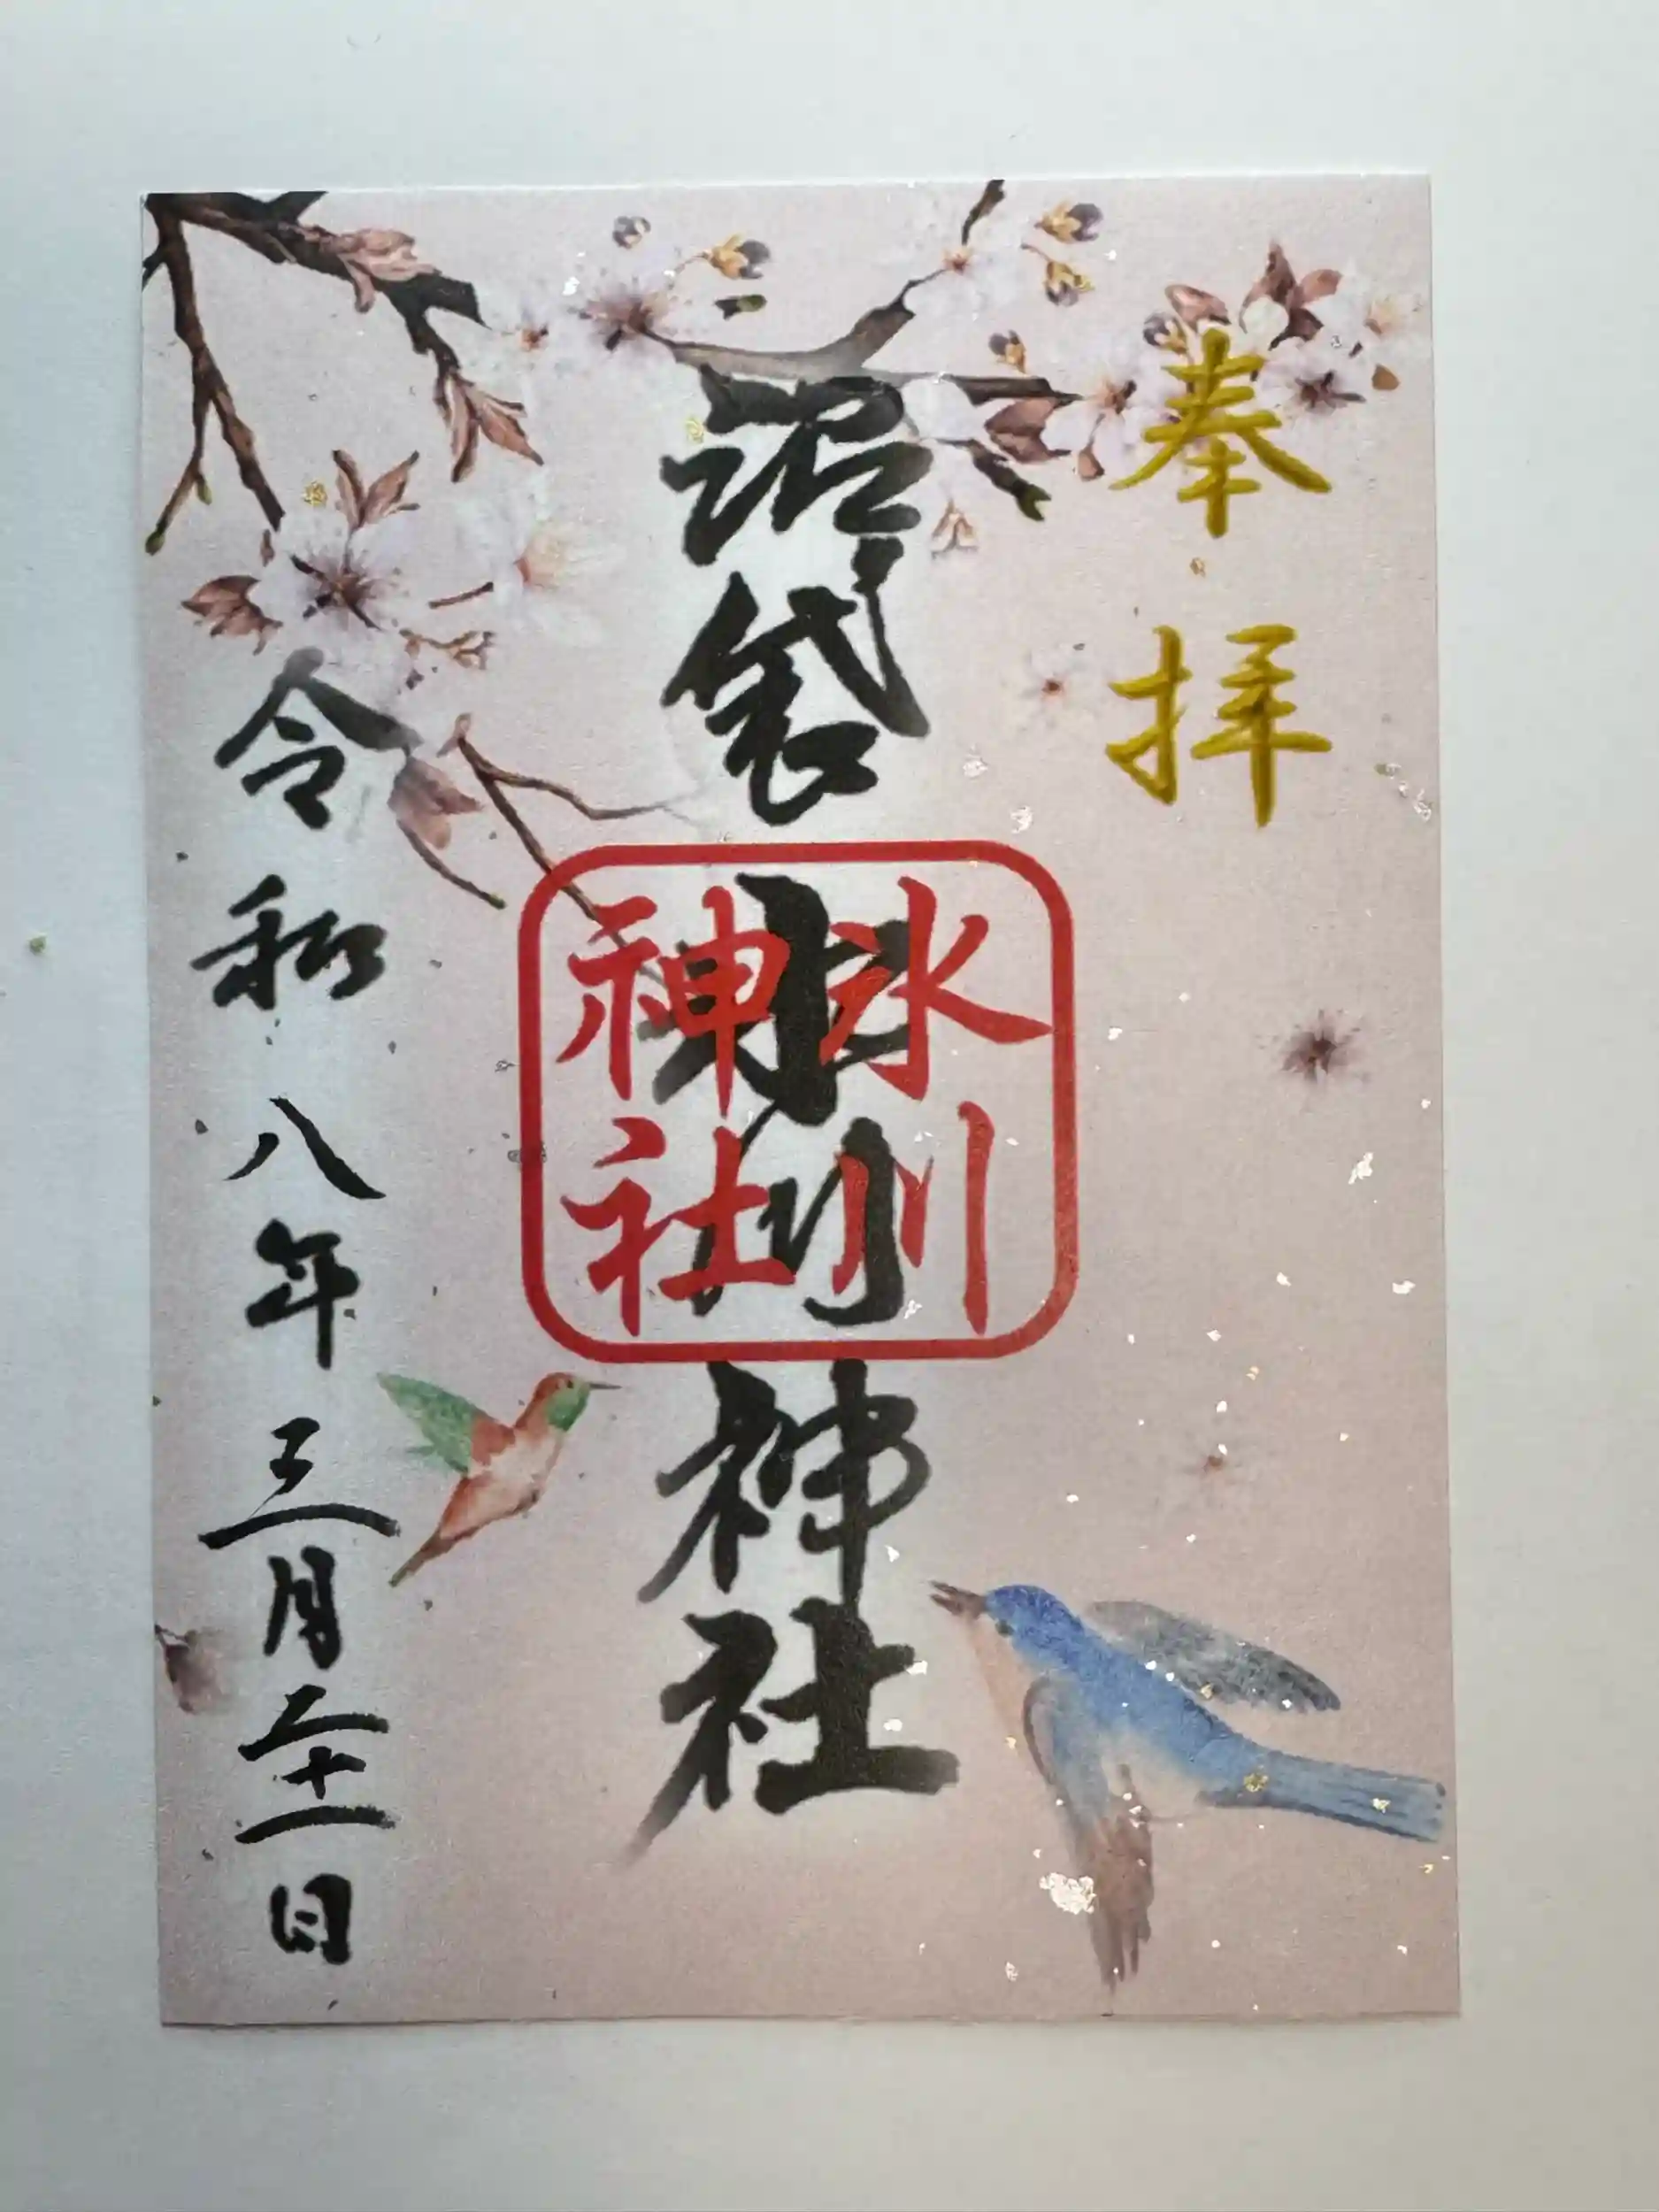 奉拝
沼袋氷川神社
氷川
神社
令和八年三月二十一日